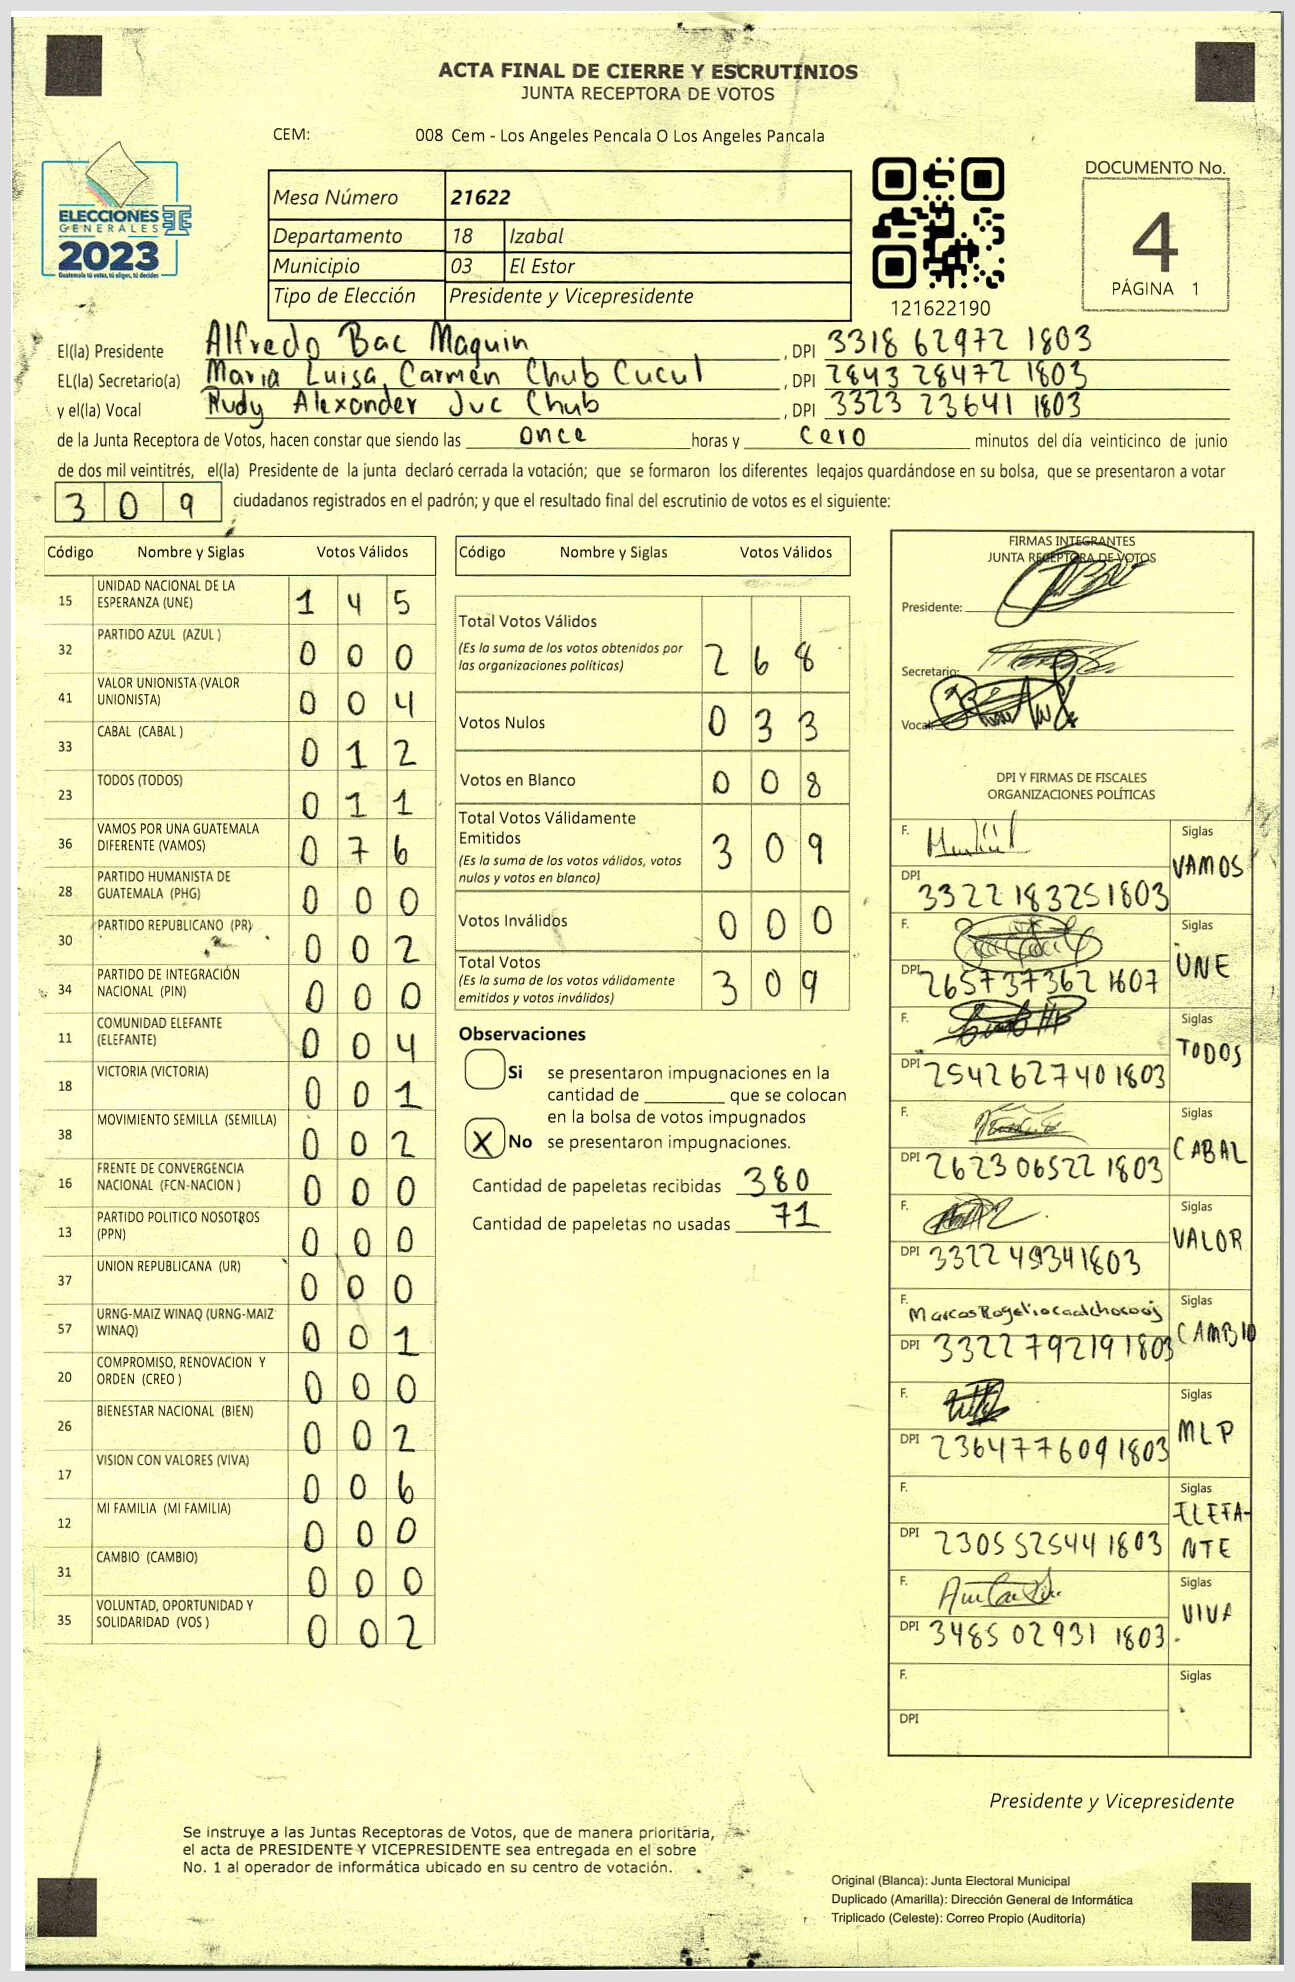 ACTA FINAL DE CIERRE Y ESCRUTINIOS
JUNTA RECEPTORA DE VOTOS
CEM: 008 Cem - Los Angeles Pencala O Los Angeles Pancala
ELECCIONES
GENERALES
2023
Guatemala tú votas, tú eliges, tú decides
Mesa Número 21622
Departamento 18 Izabal
Municipio 03 El Estor
Tipo de Elección Presidente y Vicepresidente
121622190
DOCUMENTO No.
4
PÁGINA 1
El(la) Presidente Alfredo Bac Maquin , DPI 3318 62972 1803
EL(la) Secretario(a) Maria Luisa Carmen Chub Cucul , DPI 2843 28472 1803
y el(la) Vocal Rudy Alexander Juc Chub , DPI 3323 23641 1803
de la Junta Receptora de Votos, hacen constar que siendo las once horas y cero minutos del día veinticinco de junio
de dos mil veintitrés, el(la) Presidente de la junta declaró cerrada la votación; que se formaron los diferentes legajos guardándose en su bolsa, que se presentaron a votar
3 0 9 ciudadanos registrados en el padrón; y que el resultado final del escrutinio de votos es el siguiente:
Código Nombre y Siglas Votos Válidos
15 UNIDAD NACIONAL DE LA ESPERANZA (UNE) 1 4 5
32 PARTIDO AZUL (AZUL ) 0 0 0
41 VALOR UNIONISTA (VALOR UNIONISTA) 0 0 4
33 CABAL (CABAL ) 0 1 2
23 TODOS (TODOS) 0 1 1
36 VAMOS POR UNA GUATEMALA DIFERENTE (VAMOS) 0 7 6
28 PARTIDO HUMANISTA DE GUATEMALA (PHG) 0 0 0
30 PARTIDO REPUBLICANO (PR) 0 0 2
34 PARTIDO DE INTEGRACIÓN NACIONAL (PIN) 0 0 0
11 COMUNIDAD ELEFANTE (ELEFANTE) 0 0 4
18 VICTORIA (VICTORIA) 0 0 1
38 MOVIMIENTO SEMILLA (SEMILLA) 0 0 2
16 FRENTE DE CONVERGENCIA NACIONAL (FCN-NACION ) 0 0 0
13 PARTIDO POLITICO NOSOTROS (PPN) 0 0 0
37 UNION REPUBLICANA (UR) 0 0 0
57 URNG-MAIZ WINAQ (URNG-MAIZ WINAQ) 0 0 1
20 COMPROMISO, RENOVACION Y ORDEN (CREO ) 0 0 0
26 BIENESTAR NACIONAL (BIEN) 0 0 2
17 VISION CON VALORES (VIVA) 0 0 6
12 MI FAMILIA (MI FAMILIA) 0 0 0
31 CAMBIO (CAMBIO) 0 0 0
35 VOLUNTAD, OPORTUNIDAD Y SOLIDARIDAD (VOS ) 0 0 2
Código Nombre y Siglas Votos Válidos
Total Votos Válidos
(Es la suma de los votos obtenidos por las organizaciones políticas) 2 6 8
Votos Nulos 0 3 3
Votos en Blanco 0 0 8
Total Votos Válidamente Emitidos
(Es la suma de los votos válidos, votos nulos y votos en blanco) 3 0 9
Votos Inválidos 0 0 0
Total Votos
(Es la suma de los votos válidamente emitidos y votos inválidos) 3 0 9
Observaciones
Si se presentaron impugnaciones en la
cantidad de ________ que se colocan
en la bolsa de votos impugnados
X No se presentaron impugnaciones.
Cantidad de papeletas recibidas 380
Cantidad de papeletas no usadas 71
FIRMAS INTEGRANTES
JUNTA RECEPTORA DE VOTOS
Presidente:
Secretario:
Vocal:
DPI Y FIRMAS DE FISCALES
ORGANIZACIONES POLÍTICAS
F. Siglas VAMOS
DPI 3322 18325 1803
F. Siglas UNE
DPI 2657 37362 1807
F. Siglas TODOS
DPI 2542 62740 1803
F. Siglas CABAL
DPI 2623 06522 1803
F. Siglas VALOR
DPI 3322 49341803
F. Marcos Rogelio Siglas CAMBIO
DPI 3322 79219 1803
F. Siglas MLP
DPI 2364 77609 1803
F. Siglas ELEFA-
DPI 2305 52544 1803 NTE
F. Siglas VIVA
DPI 3485 02931 1803.
F. Siglas
DPI
Presidente y Vicepresidente
Se instruye a las Juntas Receptoras de Votos, que de manera prioritaria,
el acta de PRESIDENTE Y VICEPRESIDENTE sea entregada en el sobre
No. 1 al operador de informática ubicado en su centro de votación.
Original (Blanca): Junta Electoral Municipal
Duplicado (Amarilla): Dirección General de Informática
Triplicado (Celeste): Correo Propio (Auditoría)